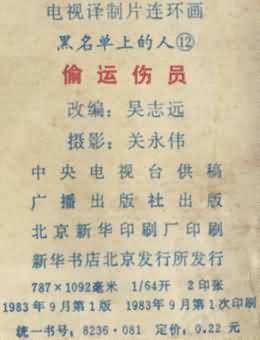 电视译制片连环画
黑名单上的人⑫
偷运伤员
改编：吴志远
摄影：关永伟
中央电视台供稿
广播出版社出版
北京新华印刷厂印刷
新华书店北京发行所发行
787×1092毫米 1/64开 2印张
1983年9月第1版 1983年9月第1次印刷
统一书号：8236·081 定价：0.22元